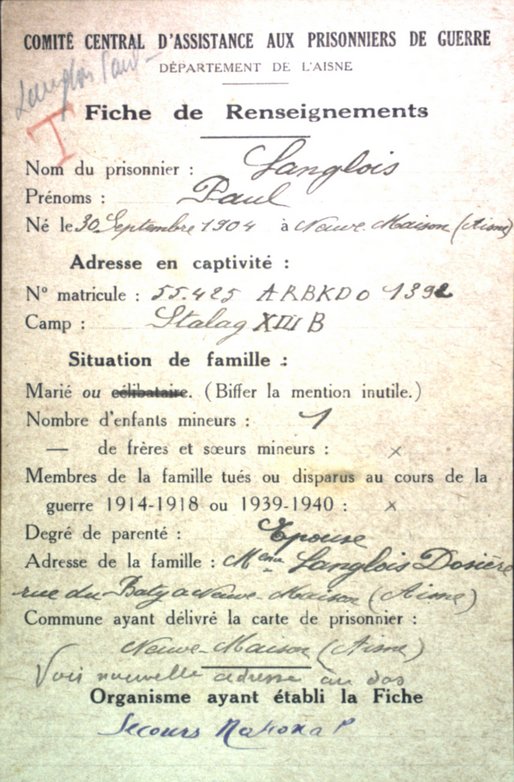 COMITÉ CENTRAL D'ASSISTANCE AUX PRISONNIERS DE GUERRE
DÉPARTEMENT DE L'AISNE
Langlois Paul
I
Fiche de Renseignements
Nom du prisonnier : Langlois
Prénoms : Paul
Né le 30 Septembre 1904 à Neuve-Maison (Aisne)
Adresse en captivité :
N° matricule : 55.425 ARBKDO 1392
Camp : Stalag XIII B
Situation de famille :
Marié ou célibataire. (Biffer la mention inutile.)
Nombre d'enfants mineurs : 1
— de frères et sœurs mineurs : x
Membres de la famille tués ou disparus au cours de la
guerre 1914-1918 ou 1939-1940 : x
Degré de parenté : Epouse
Adresse de la famille : Mme Langlois Dosière
rue du Baty a Neuve-Maison (Aisne)
Commune ayant délivré la carte de prisonnier :
Neuve-Maison (Aisne)
Voir nouvelle adresse au dos
Organisme ayant établi la Fiche
Secours National